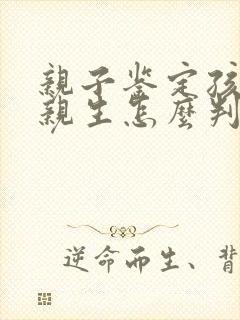 親子鉴定孩
親生怎麼判
逆命而生、背